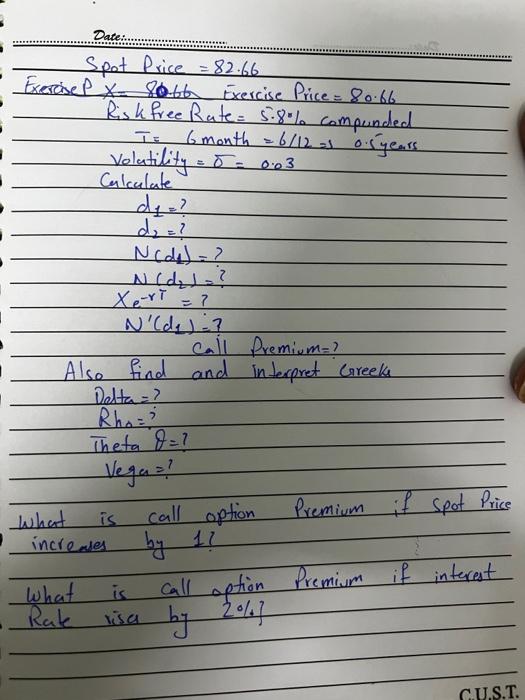 Date:
Spot Price = 82.66
Exercise P X= 80.66 Exercise Price = 80.66
Risk free Rate = 5.8% compunded
T = 6 month = 6/12 = 0.5 years
Volatility = σ = 0.03
Calculate
d1 = ?
d2 = ?
N(d1) = ?
N(d2) = ?
Xe-rT = ?
N'(d1) = ?
Call Premium = ?
Also find and interpret Greeks
Delta = ?
Rho = ?
Theta θ = ?
Vega = ?
What is call option Premium if Spot Price
increases by 1?
What is call option Premium if interest
Rate rises by 2%?
C.U.S.T.